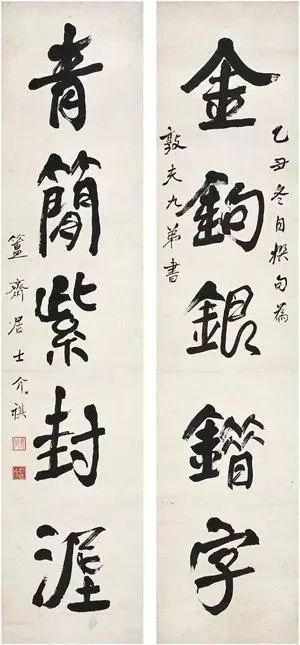 金鉤銀鐕字
乙丑冬日撰句為
敦夫九弟書
青簡紫封埿
簠齋居士介祺